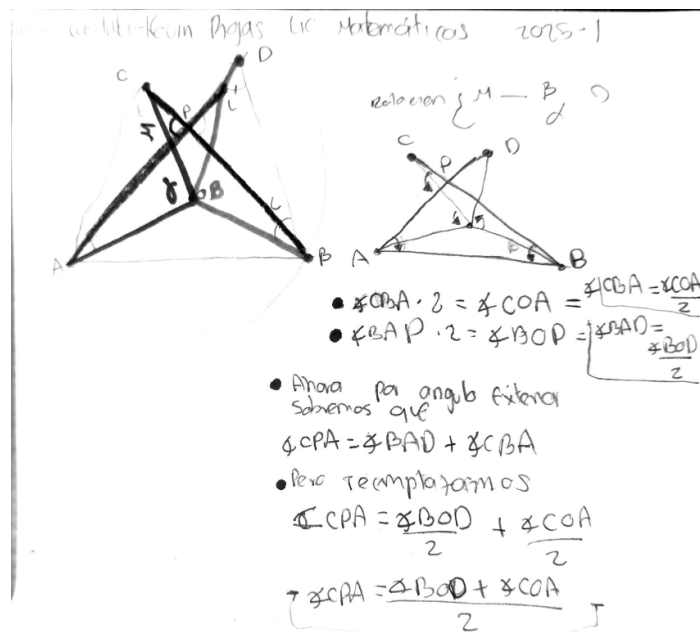 Kevin Rojas Lic Matemáticas 2025-1
D
C
P
L
M
γ
B
L
A
B
Relacion { M — B
α
C
D
P
A
B
• ∡CBA · 2 = ∡COA = ∡CBA = ∡COA/2
• ∡BAP · 2 = ∡BOP = ∡BAD = ∡BOD/2
• Ahora por angulo Externo
sabremos que
∡CPA = ∡BAD + ∡CBA
• Pero reemplazamos
∡CPA = ∡BOD/2 + ∡COA/2
∡CPA = ∡BOD + ∡COA/2